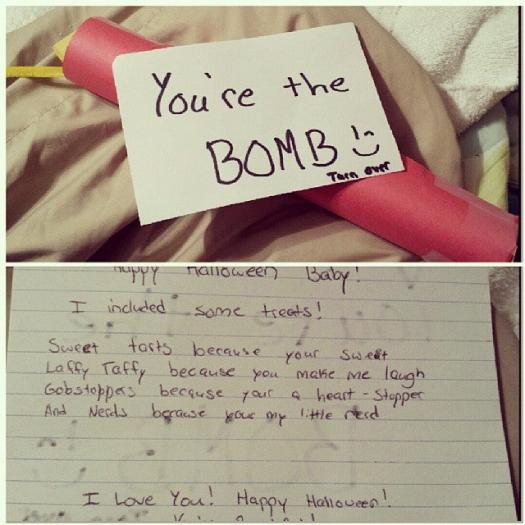 You're the
BOMB
Turn over
Happy Halloween Baby!
I included some treats!
Sweet tarts because your sweet
Laffy Taffy because you make me laugh
Gobstoppers because your a heart-stopper
And Nerds because your my little nerd
I Love You! Happy Halloween!